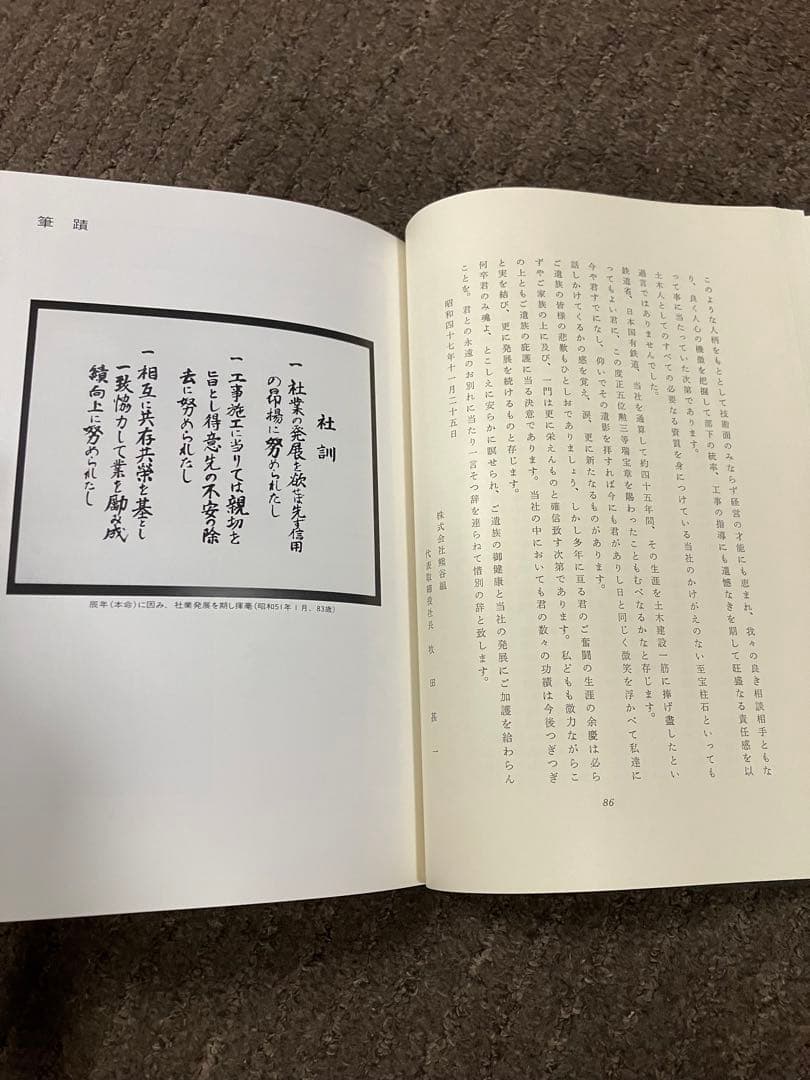 このような人柄をもととして技術面のみならず経営の才能にも恵まれ、我々の良き相談相手ともな
り、良く人心の機微を把握して部下の統率、工事の指導にも遺憾なきを期して旺盛なる責任感を以
って事に当たっていた次第であります。
土木人としてのすべての必要なる資質を身につけている当社のかけがえのない至宝柱石といっても
過言ではありませんでした。
鉄道省、日本国有鉄道、当社を通算して約四十五年間、その生涯を土木建設一筋に捧げ盡したとい
ってもよい君に、この度正五位勲三等瑞宝章を賜わったこともむべなるかなと存じます。
今や君すでになし、仰いでその遺影を拝すれば今にも君がありし日と同じく微笑を浮かべて私達に
話しかけてくるかの感を覚え、涙、更に新たなるものがあります。
ご遺族の皆様の悲歎もひとしおでありましょう、しかし多年に亘る君のご奮闘の生涯の余慶は必ら
ずやご家族の上に及び、一門は更に栄えんものと確信致す次第であります。私どもも微力ながらこ
の上ともご遺族の庇護に当る決意であります。当社の中においても君の数々の功績は今後つぎつぎ
と実を結び、更に発展を続けるものと存じます。
何卒君のみ魂よ、とこしえに安らかに瞑せられ、ご遺族の御健康と当社の発展にご加護を給わらん
ことを。君との永遠のお別れに当たり一言そつ辞を連らねて惜別の辞と致します。
昭和四十七年十一月二十五日
株式会社熊谷組
代表取締役社長 牧田甚一
86
筆蹟
社訓
一 社業の発展を欲せば先ず信用
の昂揚に努められたし
一 工事施工に当りては親切を
旨とし得意先の不安の除
去に努められたし
一 相互に共存共榮を基とし
一致恊力して業を励み成
績向上に努められたし
辰年(本命)に因み、社業発展を期し揮毫(昭和51年1月、83歳)